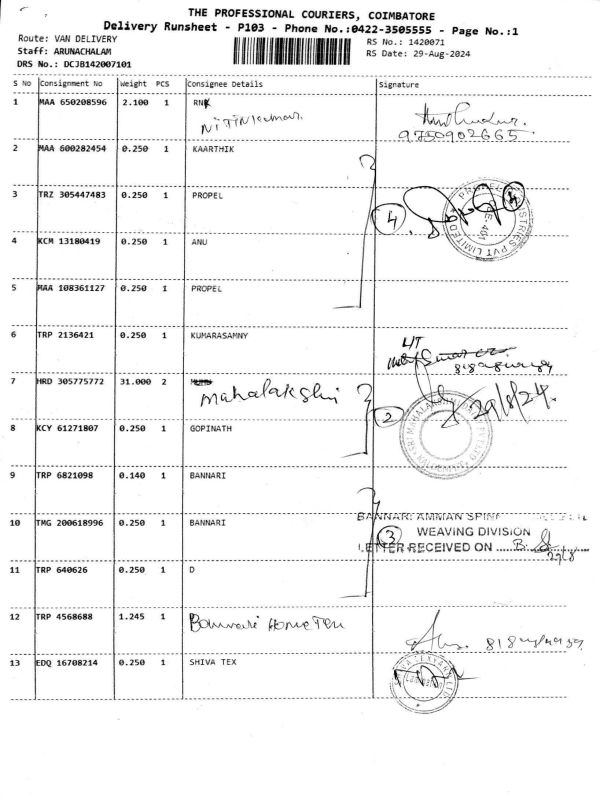 THE PROFESSIONAL COURIERS, COIMBATORE
Delivery Runsheet - P103 - Phone No.:0422-3505555 - Page No.:1
Route: VAN DELIVERY RS No.: 1420071
Staff: ARUNACHALAM RS Date: 29-Aug-2024
DRS No.: DCJB142007101
S No Consignment No Weight PCS Consignee Details Signature
1 MAA 650208596 2.100 1 RNK
NITIN Kumar.
9750902665
2 MAA 600282454 0.250 1 KAARTHIK
3 TRZ 305447483 0.250 1 PROPEL
4
4 KCM 13180419 0.250 1 ANU
5 MAA 108361127 0.250 1 PROPEL
6 TRP 2136421 0.250 1 KUMARASAMNY
7 HRD 305775772 31.000 2
Mahalakshi
2 29/8/24.
8 KCY 61271807 0.250 1 GOPINATH
9 TRP 6821098 0.140 1 BANNARI
BANNARI AMMAN
10 TMG 200618996 0.250 1 BANNARI
3 WEAVING DIVISION
LETTER RECEIVED ON
29/8
11 TRP 640626 0.250 1 D
12 TRP 4568688 1.245 1 Bannari Home Tex
13 EDQ 16708214 0.250 1 SHIVA TEX